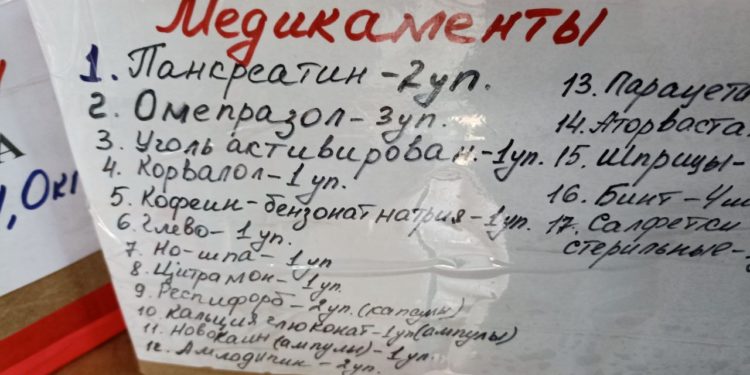 Медикаменты
1. Панкреатин - 2 уп.
2. Омепразол - 3 уп.
3. Уголь активирован. - 1 уп.
4. Корвалол - 1 уп.
5. Кофеин-бензонат натрия - 1 уп.
6. Глево - 1 уп.
7. Но-шпа - 1 уп
8. Цитрамон - 1 уп.
9. Респифорб - 2 уп. (капсулы)
10. Кальция глюконат - 1 уп (ампулы)
11. Новокаин (ампулы) - 1 уп.
12. Амлодипин - 2 уп.
13. Парацета
14. Аторваста
15. Шприцы -
16. Бинт - 4 ш
17. Салфетки
стерильные -